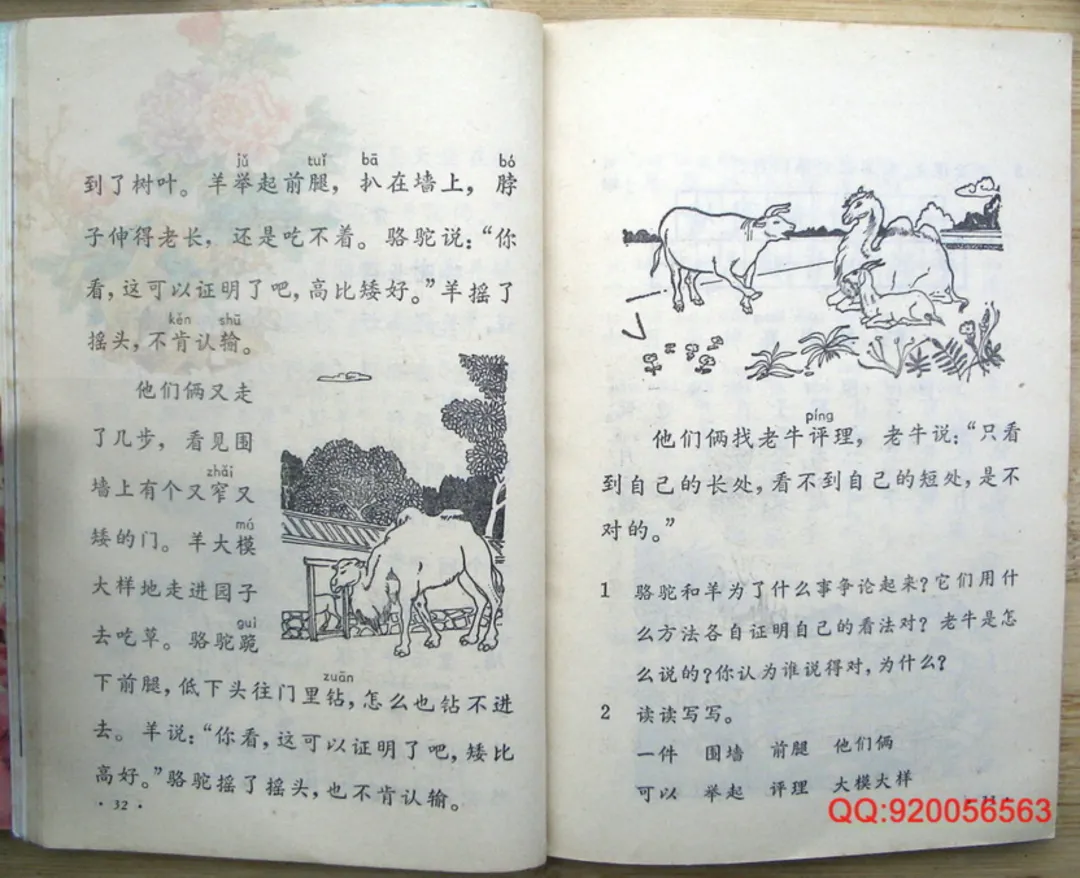 jǔ tuǐ bā bó
到了树叶。羊举起前腿，扒在墙上，脖
子伸得老长，还是吃不着。骆驼说：“你
看，这可以证明了吧，高比矮好。”羊摇了
kěn shū
摇头，不肯认输。
他们俩又走
了几步，看见围
zhǎi
墙上有个又窄又
mú
矮的门。羊大模
大样地走进园子
guì
去吃草。骆驼跪
下前腿，低下头往门里钻，怎么也钻不进
zuān
去。羊说：“你看，这可以证明了吧，矮比
高好。”骆驼摇了摇头，也不肯认输。
· 32 ·
píng
他们俩找老牛评理，老牛说：“只看
到自己的长处，看不到自己的短处，是不
对的。”
1 骆驼和羊为了什么事争论起来？它们用什
么方法各自证明自己的看法对？老牛是怎
么说的？你认为谁说得对，为什么？
2 读读写写。
一件 围墙 前腿 他们俩
可以 举起 评理 大模大样
QQ:920056563